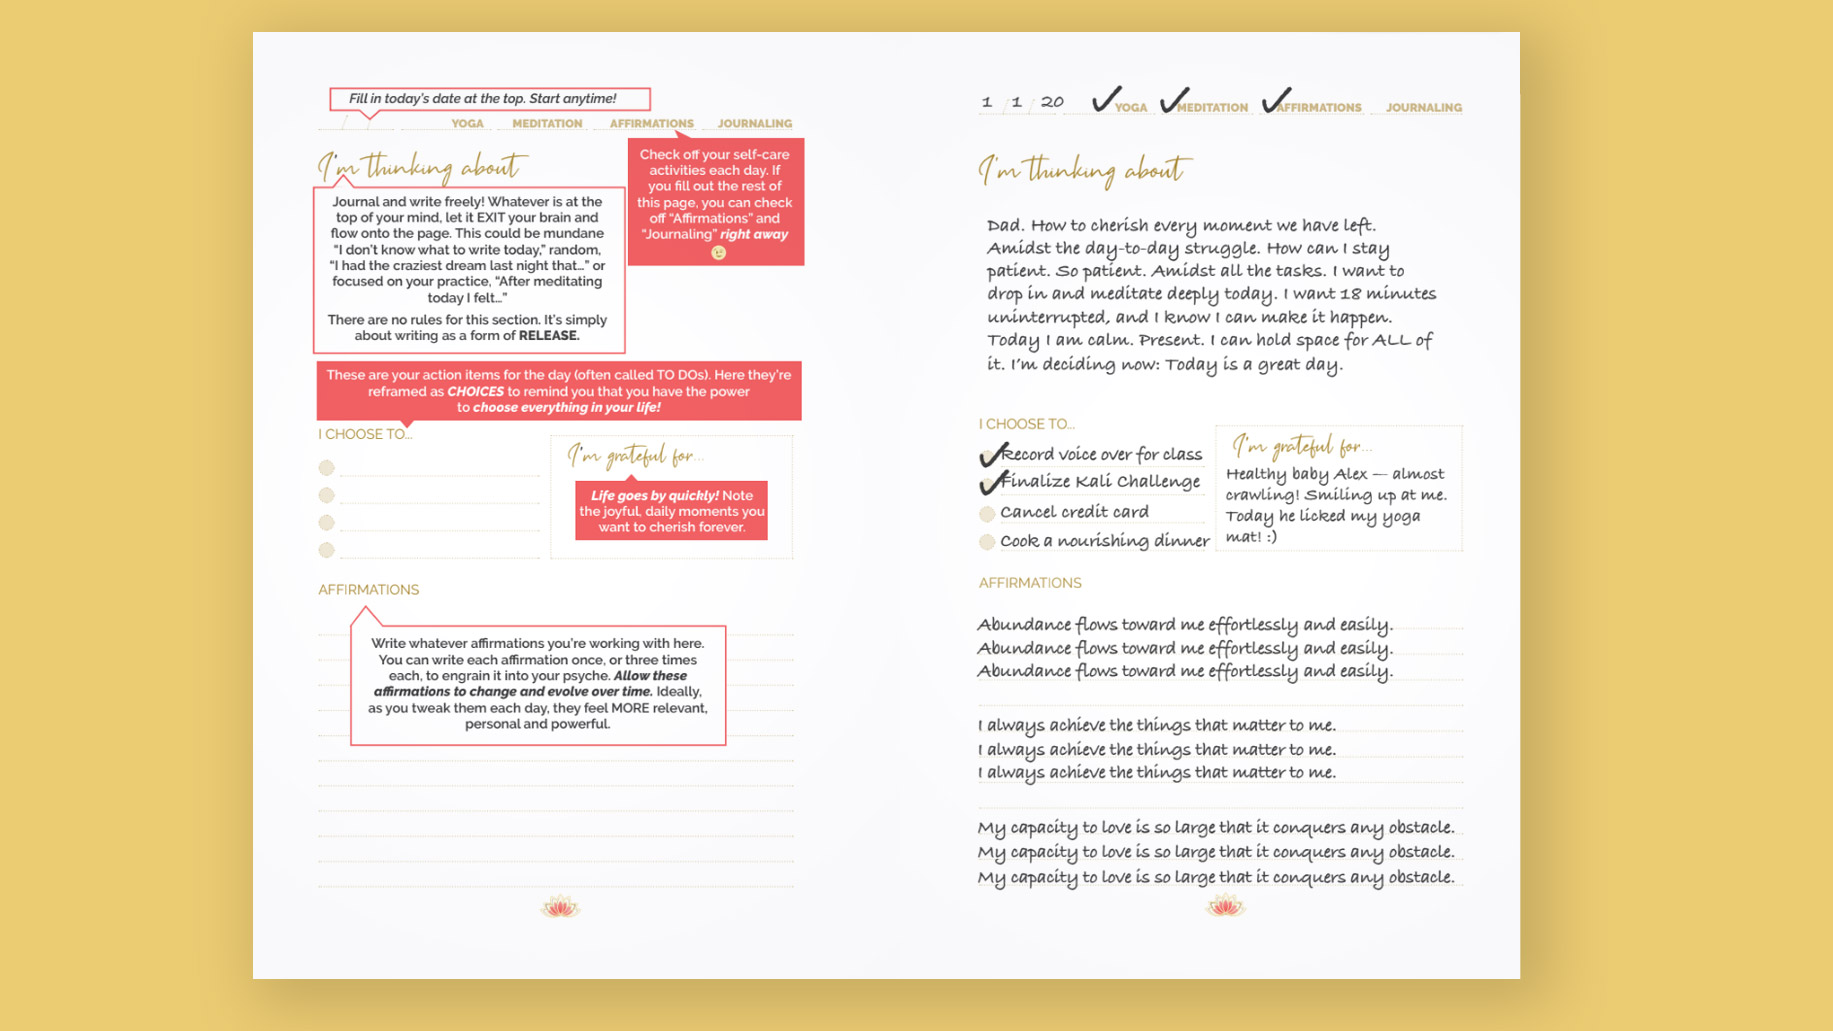 Fill in today's date at the top. Start anytime!
YOGA MEDITATION AFFIRMATIONS JOURNALING
I'm thinking about
Journal and write freely! Whatever is at the
top of your mind, let it EXIT your brain and
flow onto the page. This could be mundane
“I don't know what to write today,” random,
“I had the craziest dream last night that...” or
focused on your practice, “After meditating
today I felt...”
There are no rules for this section. It's simply
about writing as a form of RELEASE.
Check off your self-care
activities each day. If
you fill out the rest of
this page, you can check
off “Affirmations” and
“Journaling” right away
These are your action items for the day (often called TO DOs). Here they're
reframed as CHOICES to remind you that you have the power
to choose everything in your life!
I CHOOSE TO...
I'm grateful for...
Life goes by quickly! Note
the joyful, daily moments you
want to cherish forever.
AFFIRMATIONS
Write whatever affirmations you're working with here.
You can write each affirmation once, or three times
each, to engrain it into your psyche. Allow these
affirmations to change and evolve over time. Ideally,
as you tweak them each day, they feel MORE relevant,
personal and powerful.
1 / 1 / 20 YOGA MEDITATION AFFIRMATIONS JOURNALING
I'm thinking about
Dad. How to cherish every moment we have left.
Amidst the day-to-day struggle. How can I stay
patient. So patient. Amidst all the tasks. I want to
drop in and meditate deeply today. I want 18 minutes
uninterrupted, and I know I can make it happen.
Today I am calm. Present. I can hold space for ALL of
it. I'm deciding now: Today is a great day.
I CHOOSE TO...
Record voice over for class
Finalize Kali Challenge
Cancel credit card
Cook a nourishing dinner
I'm grateful for...
Healthy baby Alex — almost
crawling! Smiling up at me.
Today he licked my yoga
mat! :)
AFFIRMATIONS
Abundance flows toward me effortlessly and easily.
Abundance flows toward me effortlessly and easily.
Abundance flows toward me effortlessly and easily.
I always achieve the things that matter to me.
I always achieve the things that matter to me.
I always achieve the things that matter to me.
My capacity to love is so large that it conquers any obstacle.
My capacity to love is so large that it conquers any obstacle.
My capacity to love is so large that it conquers any obstacle.